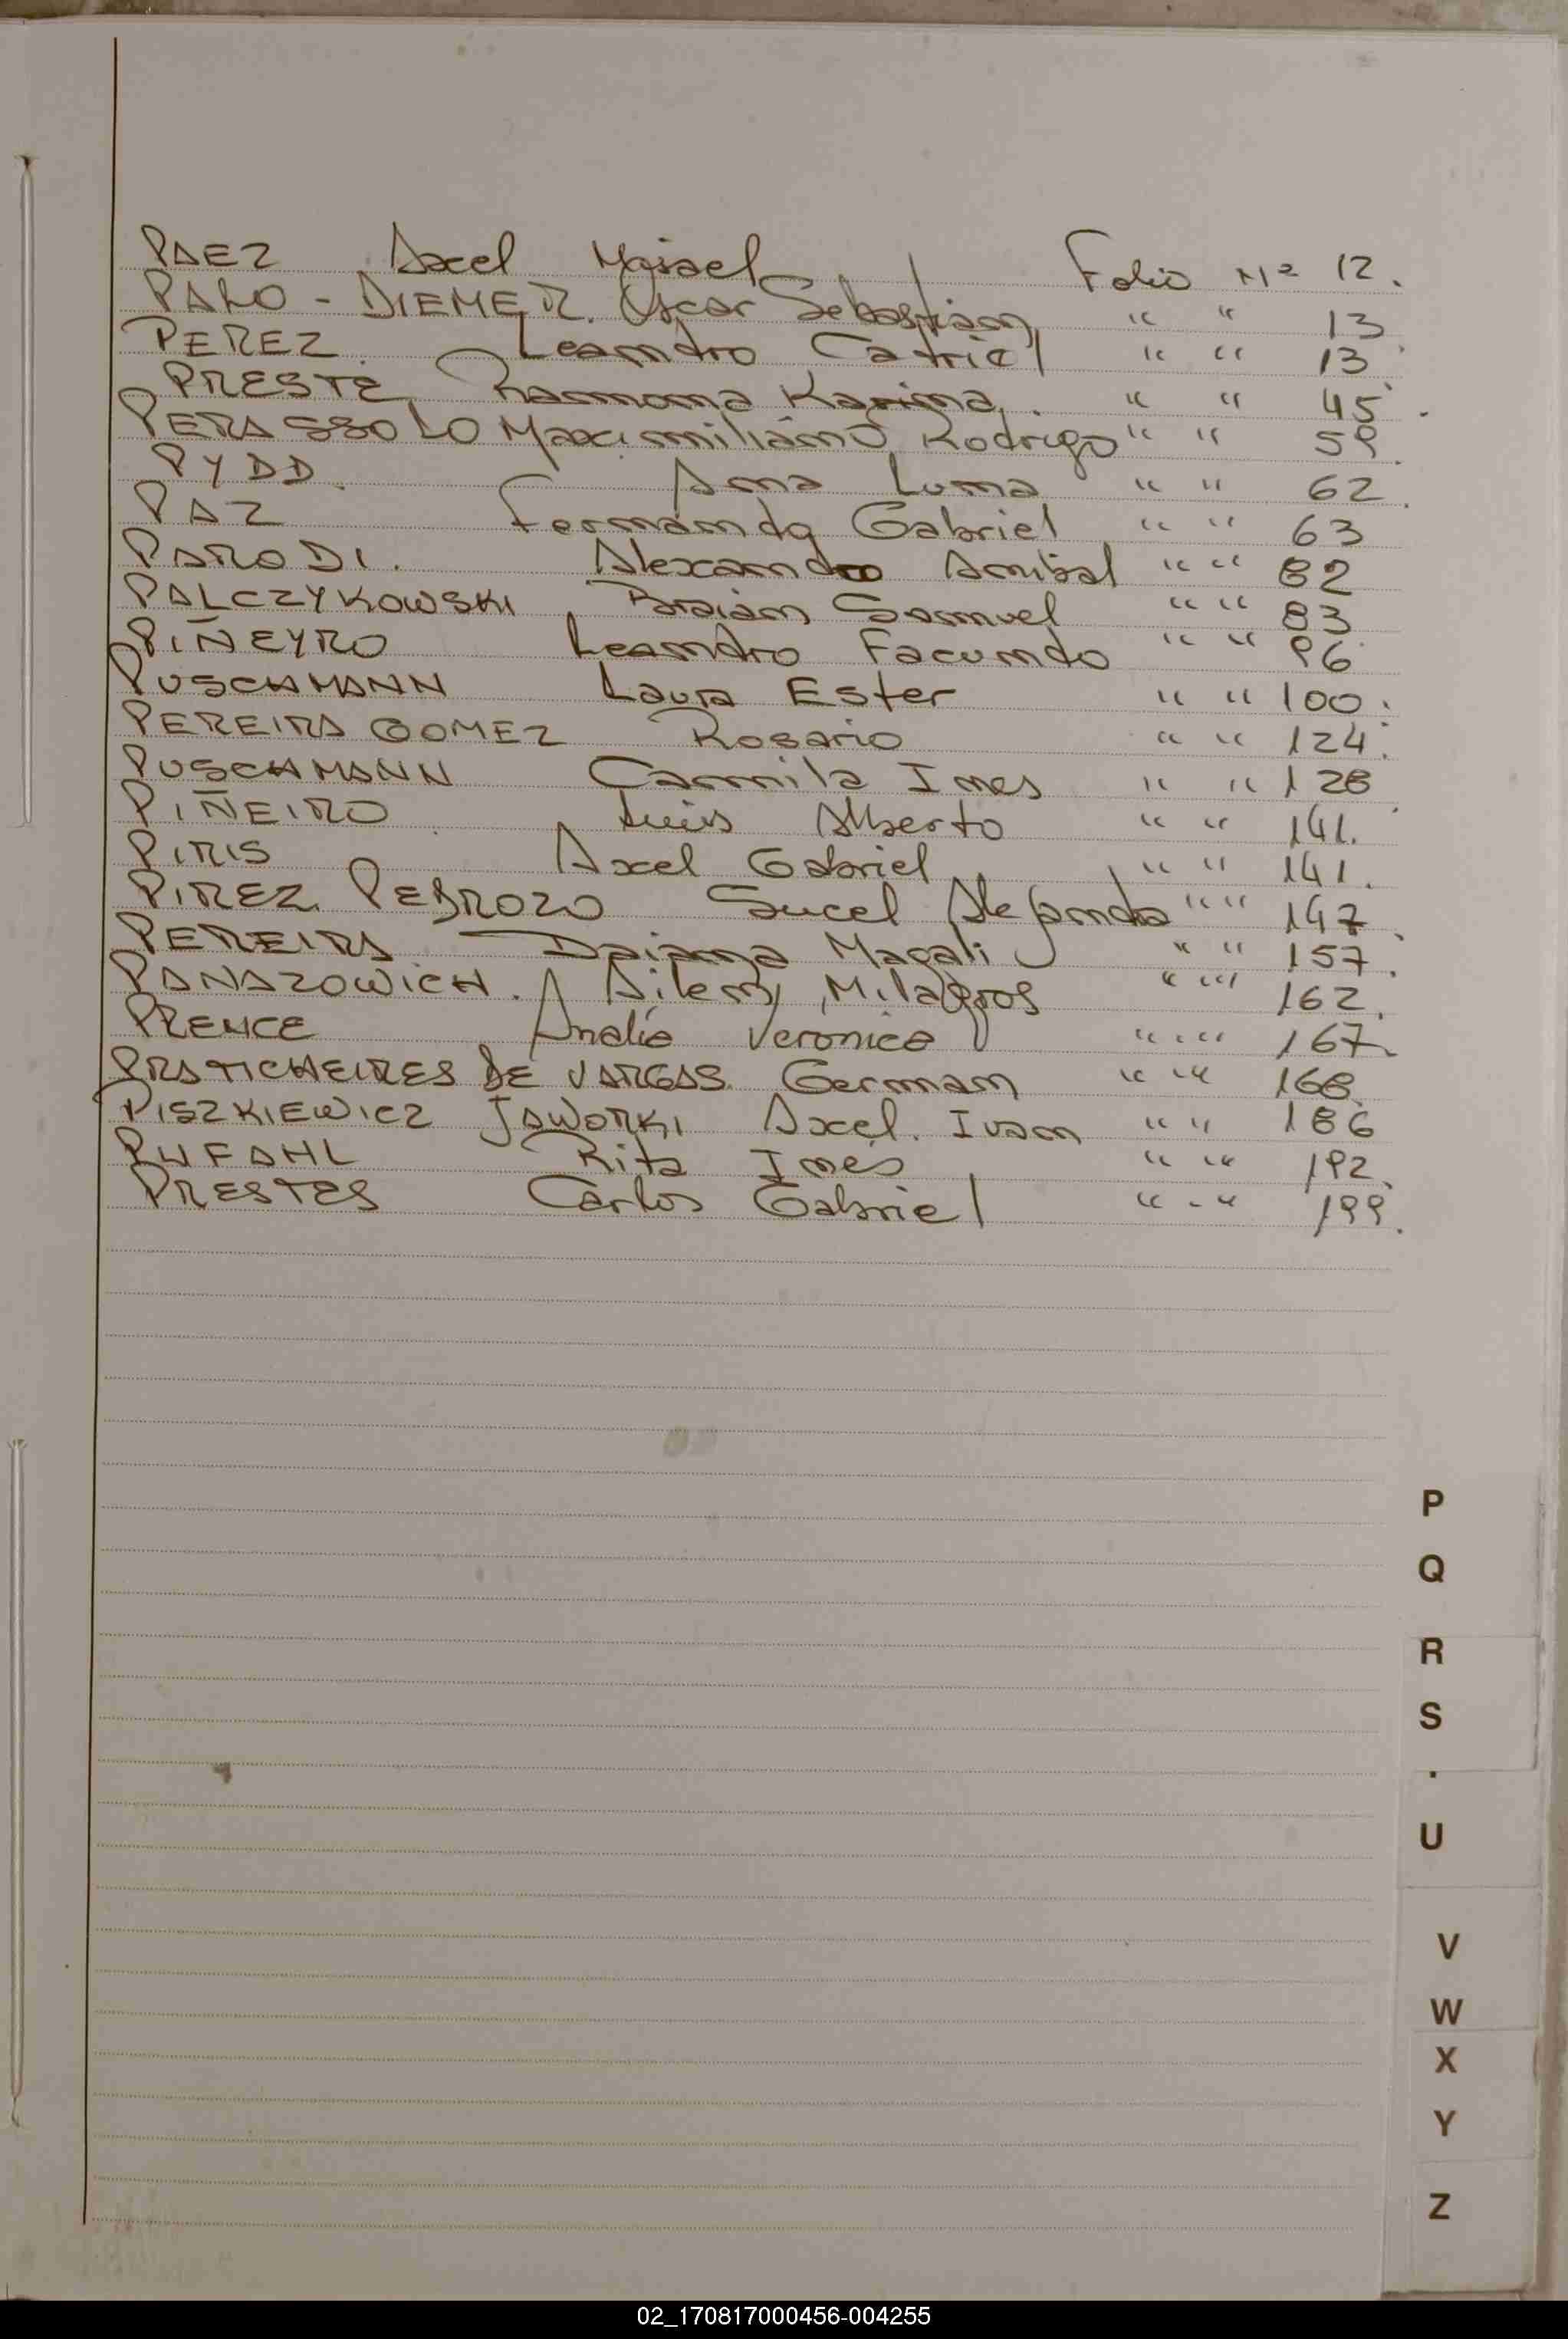 PAEZ Axel Misael Folio Nº 12.
PALO - DIEMER. Oscar Sebastian " " 13
PEREZ. Leandro Catriel " " 13
PRESTE Ramona Karina. " " 45.
PERASSOLO Maximiliano Rodrigo " " 59.
PYDD. Ana Luna " " 62.
PAZ Fernando Gabriel " " 63
PARODI. Alexandro Anibal " " 82
PALCZYKOWSKI Braian Samuel " " 83
PIÑEYRO Leandro Facundo " " 96
PUSCHMANN Laura Ester " " 100.
PEREIRA GOMEZ Rosario " " 124.
PUSCHMANN Camila Ines " " 128
PIÑEIRO Luis Alberto " " 141.
PIRIS Axel Gabriel " " 141.
PIREZ PEDROZO Sucel Alejandra " " 147
PEREIRA Daiana Magali " " 157.
PANAZOWICH. Ailen Milagros " " 162.
PRENCE Analía Veronica " " 167.
PRATICHEIRES DE VARGAS. German " " 168.
PISZKIEWICZ JAWORKI Axel. Ivan " " 186
PUFAHL Rita Ines " " 192.
PRESTES Carlos Gabriel " - " 199.
P
Q
R
S
.
U
V
W
X
Y
Z
02_170817000456-004255